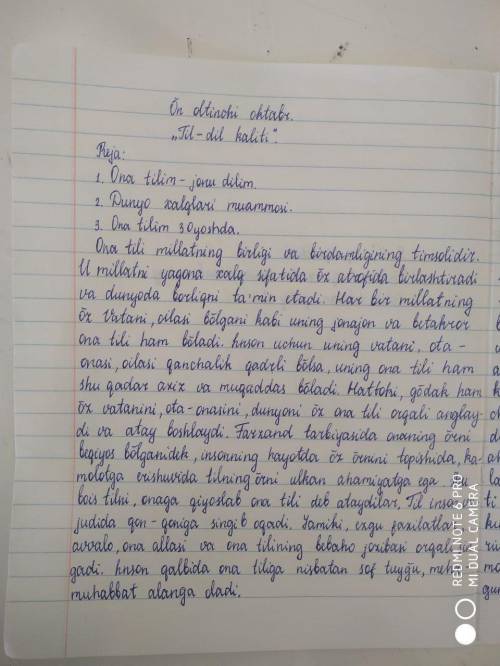 Ōn oltinchi oktabr.
„Til-dil kaliti".
Reja:
1. Ona tilim - jonu dilim.
2. Dunyo xalqlari muammosi.
3. Ona tilim 30 yoshda.
Ona tili millatning birligi va birdamligining timsolidir.
U millatni yagona xalq sifatida ōz atrofida birlashtiradi
va dunyoda borliqni ta'min etadi. Har bir millatning
ōz Vatani, oilasi bōlgani kabi uning jonajon va betakror
ona tili ham bōladi. Inson uchun uning vatani, ota-
onasi, oilasi qanchalik qadrli bōlsa, uning ona tili ham
shu qadar aziz va muqaddas bōladi. Hattoki, gōdak ham
ōz vatanini, ota-onasini, dunyoni ōz ona tili orqali anglay-
di va atay boshlaydi. Farzand tarbiyasida onaning ōrni
beqiyos bōlganidek, insonning hayotda ōz ōrnini topishida, ka-
molotga erishuvida tilning ōrni ulkan ahamiyatga ega.
bois tilni, onaga qiyoslab ona tili deb ataydilar. Til
judida qon-qoniga singib oqadi. Jamiki, ezgu fazilatlar
avvalo, ona allasi va ona tilining bebaho jozibasi orqali
gadi. Inson qalbida ona tiliga nisbatan sof tuyğu, meh
muhabbat alanga oladi.
REDMI NOTE 6 PRO
MI DUAL CAMERA